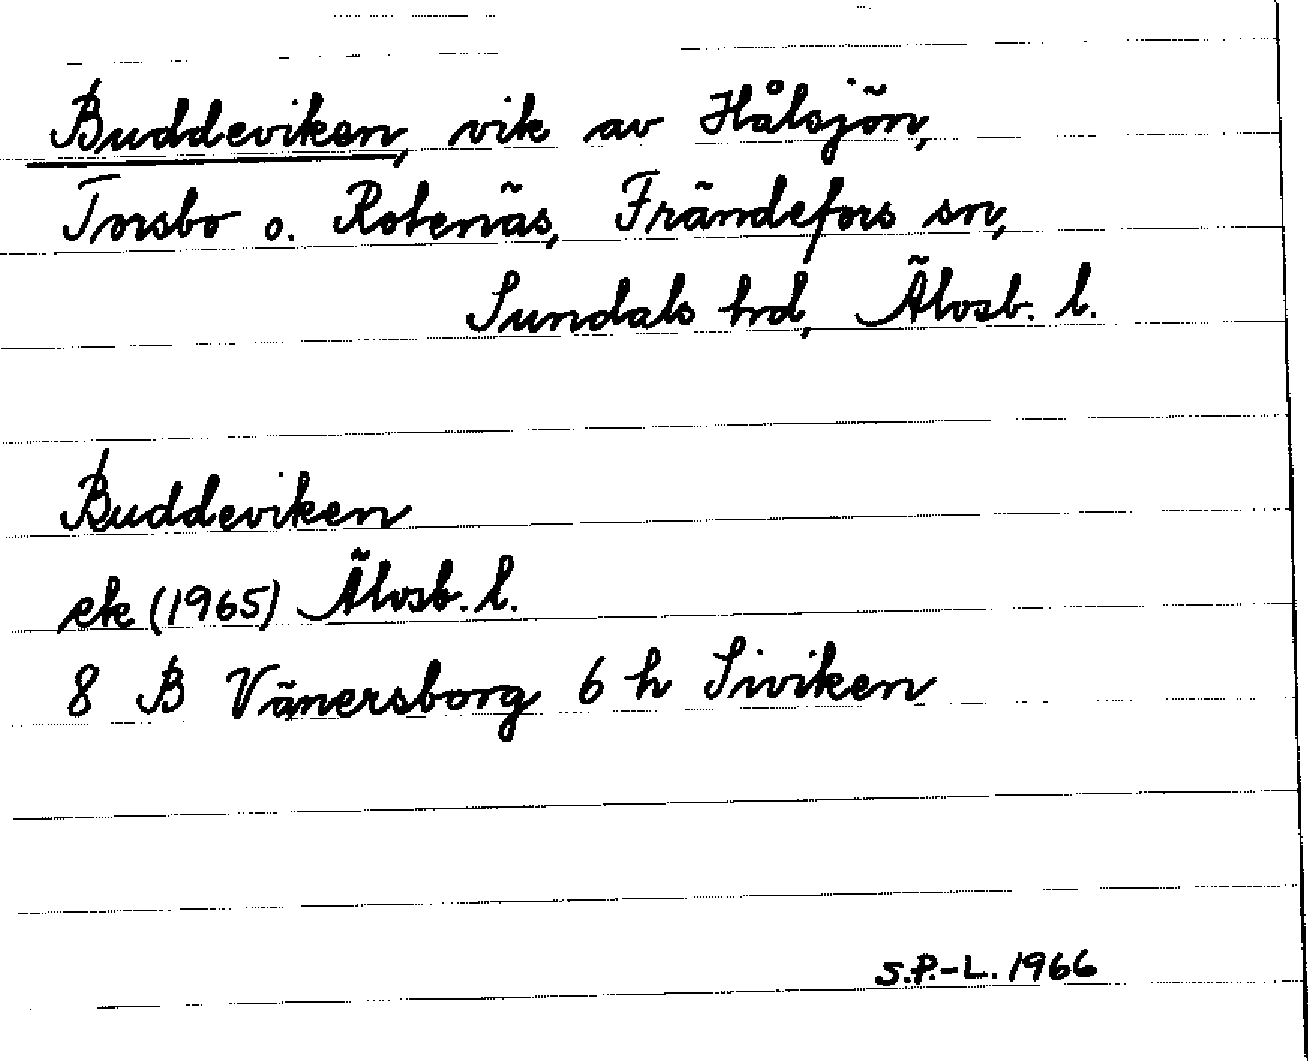 Buddeviken, vik av Hålsjön,
Torsbo o. Rotenäs, Frändefors sn,
Sundals hrd, Älvsb. l.
Buddeviken
ek (1965) Älvsb. l.
8 B Vänersborg 6 h Siviken
S.P.-L. 1966